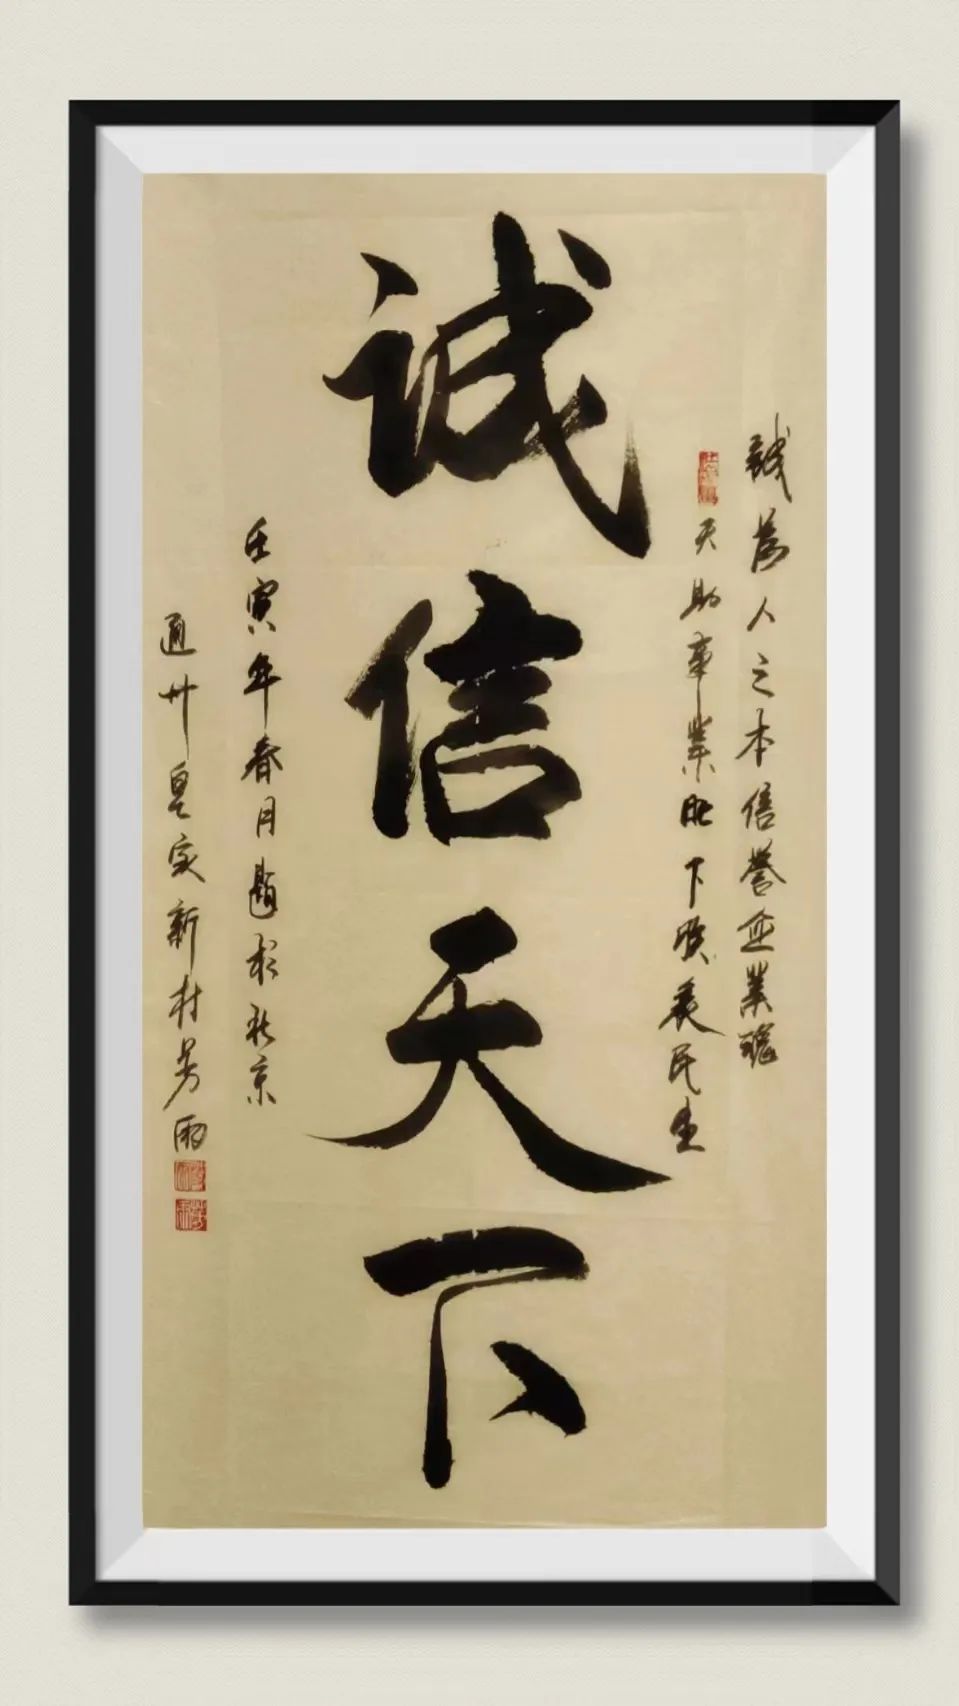 诚信天下
誠為人之本信誉企业魂
天助事業旺下發展民生
壬寅年春月題於北京
通州皇家新村芳雨